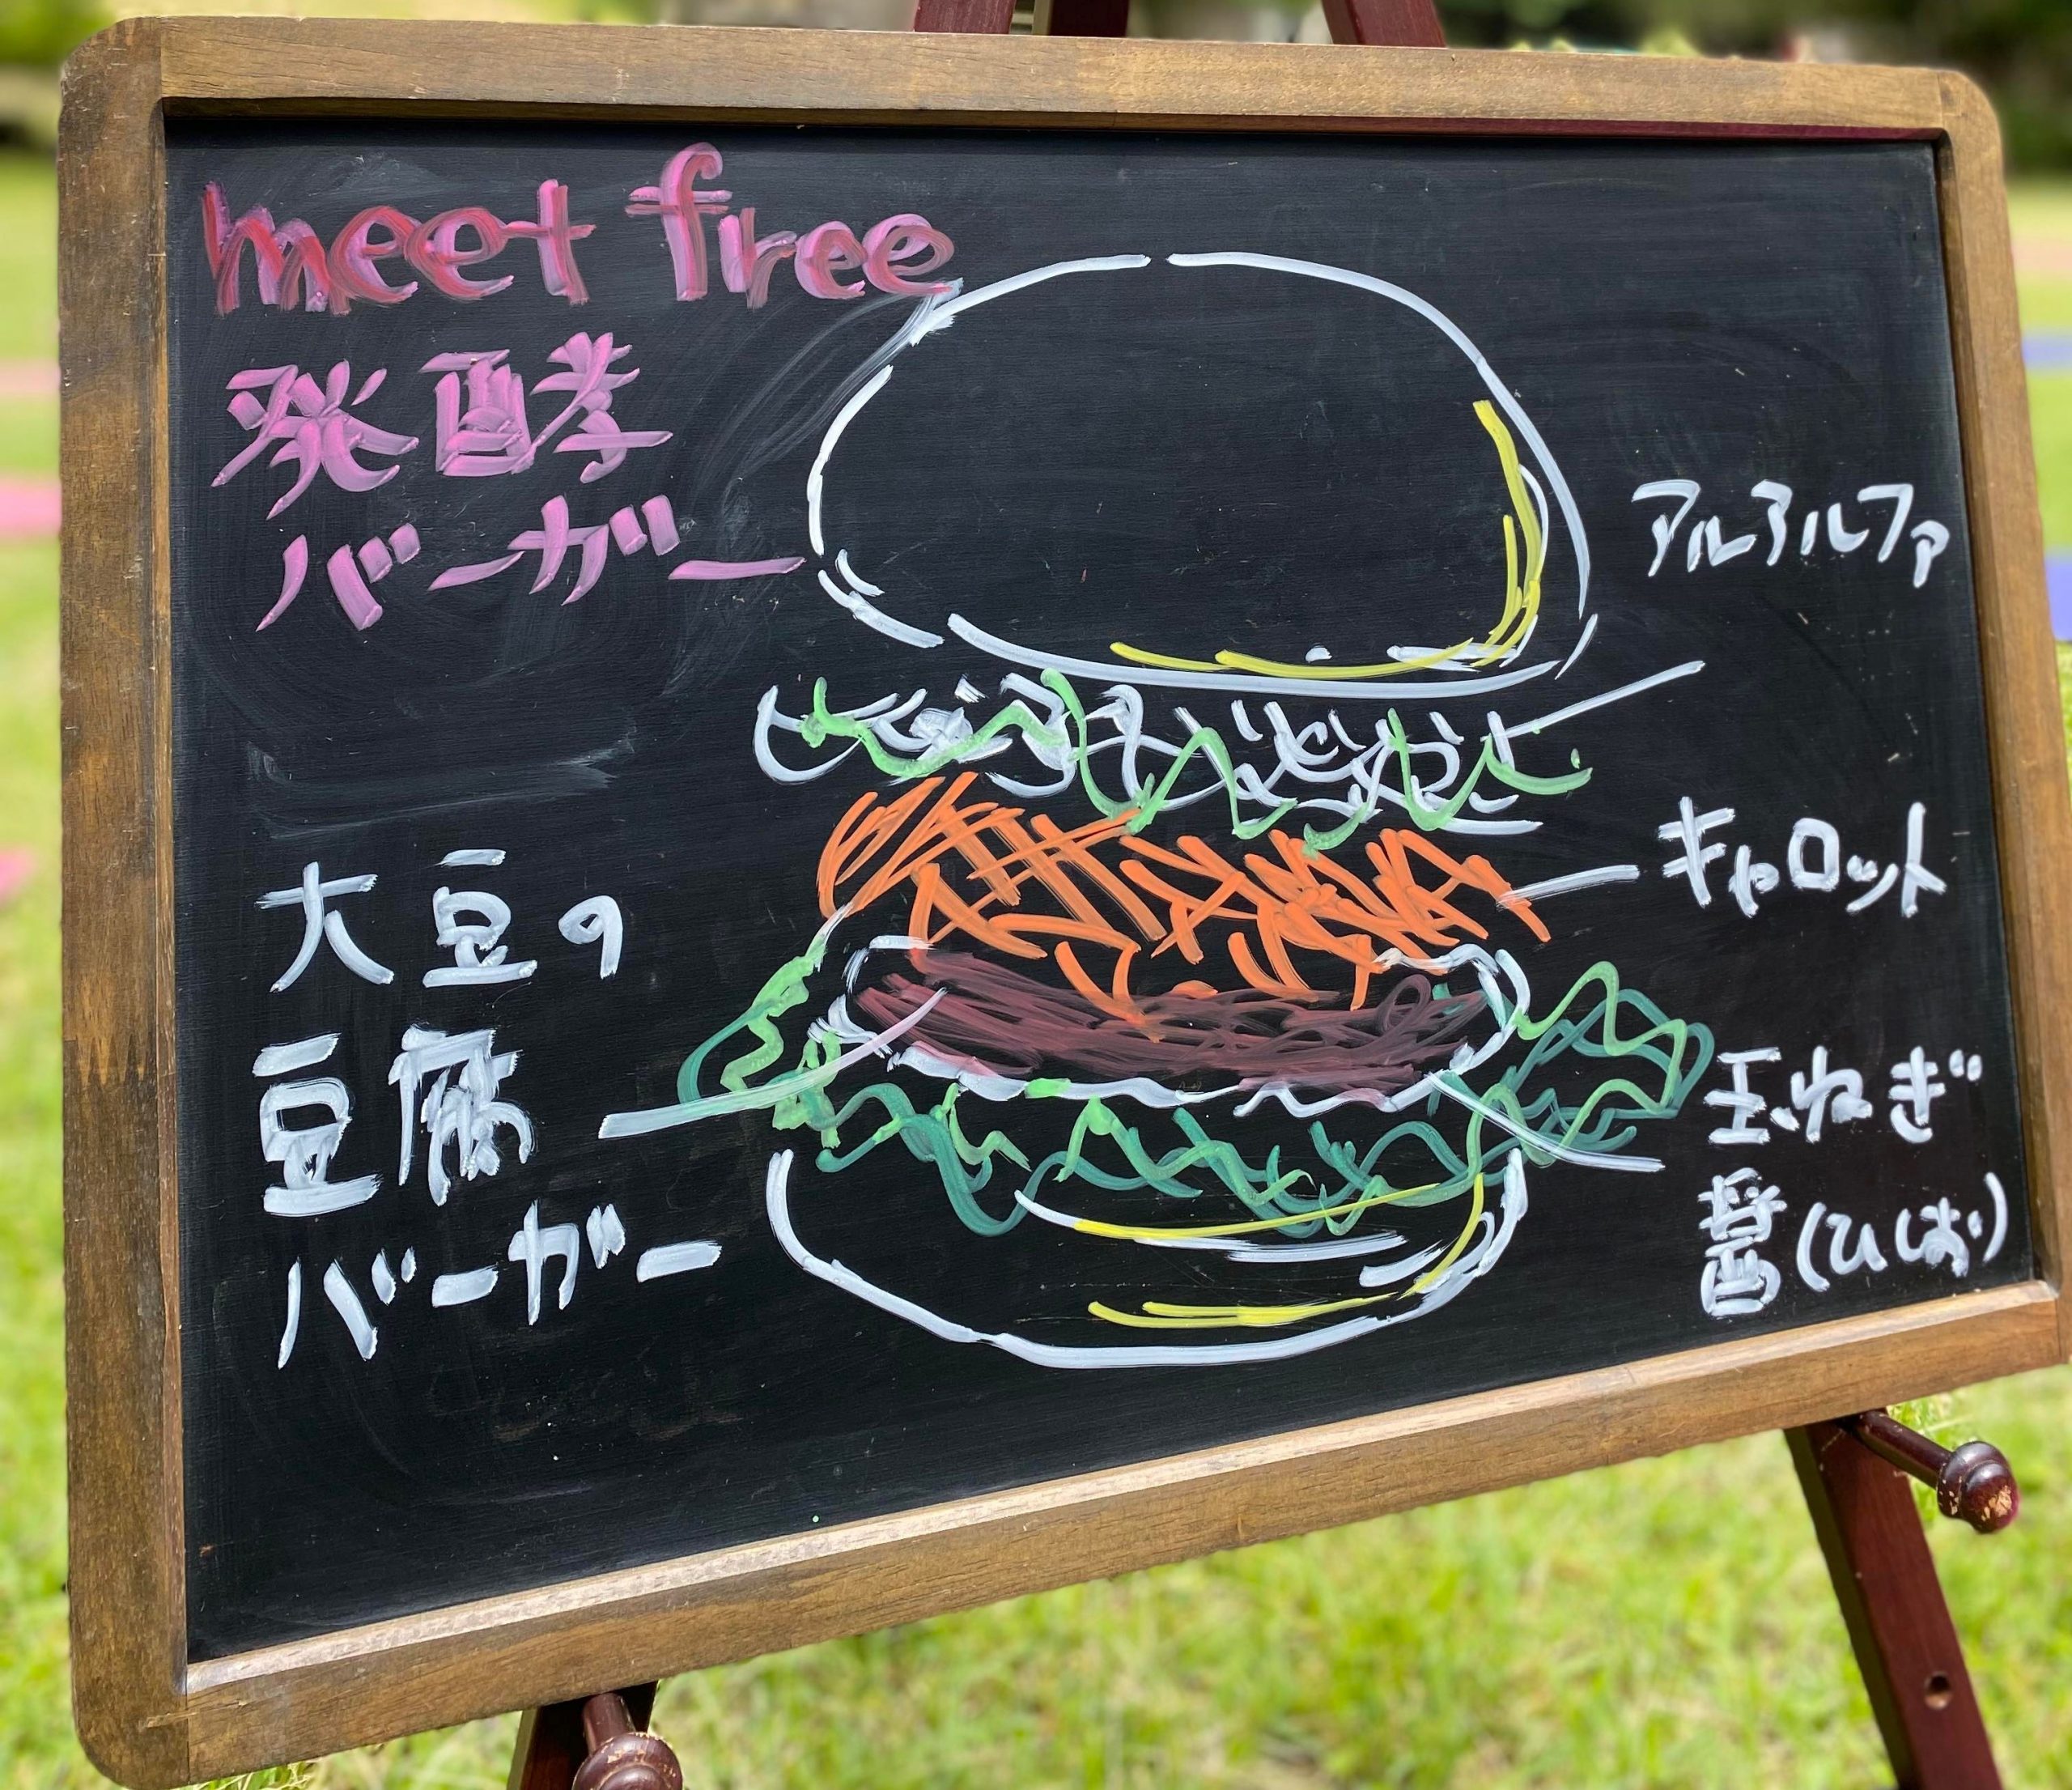 meet free
発酵
バーガー
アルアルファ
キャロット
大豆の
豆腐
バーガー
玉ねぎ
醤(ひしお)